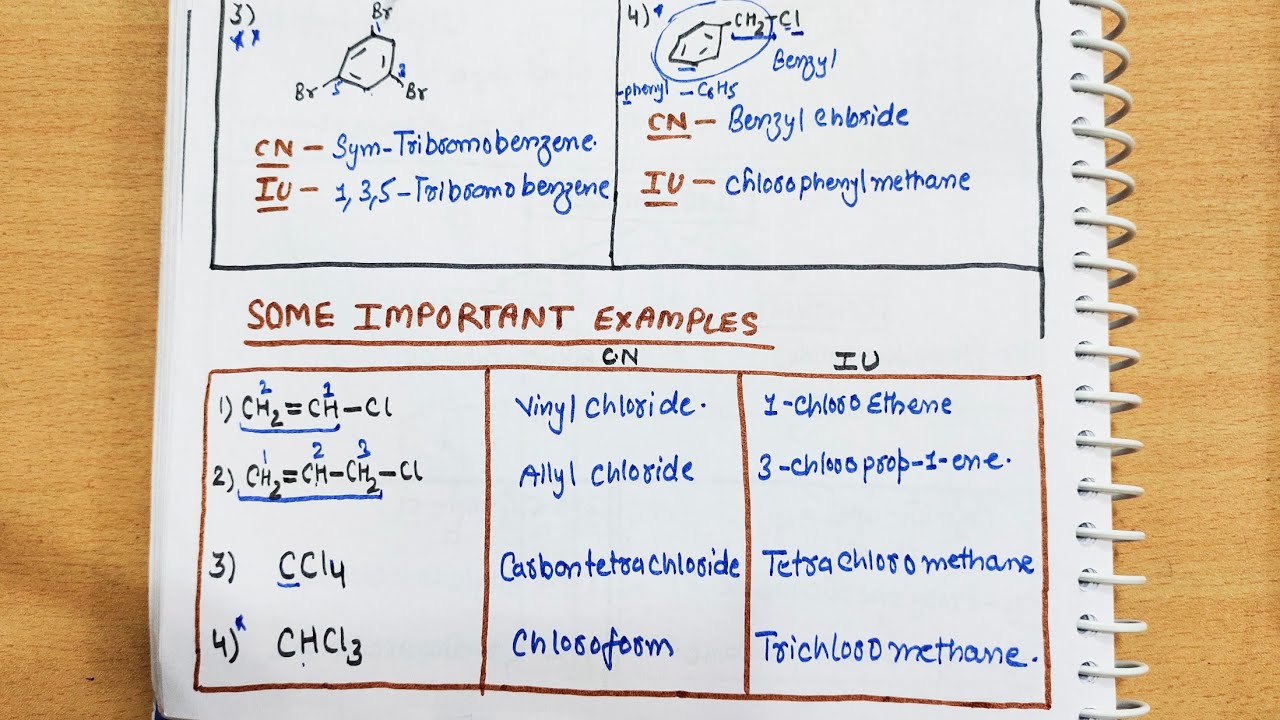 3)
**
Br
Br 5
3 Br
CN – Sym-Tribromobenzene.
IU – 1,3,5-Tribromobenzene
4)*
CH2-Cl
Benzyl
-phenyl – C6H5
CN – Benzyl Chloride
IU – Chlorophenylmethane
SOME IMPORTANT EXAMPLES
CN IU
2 1
1) CH2=CH-Cl Vinyl Chloride. 1-Chloro Ethene
1 2 3
2) CH2=CH-CH2-Cl Allyl Chloride 3-chloroprop-1-ene.
3) CCl4 Carbontetrachloride Tetrachloromethane
4)* CHCl3 Chloroform Trichloromethane.